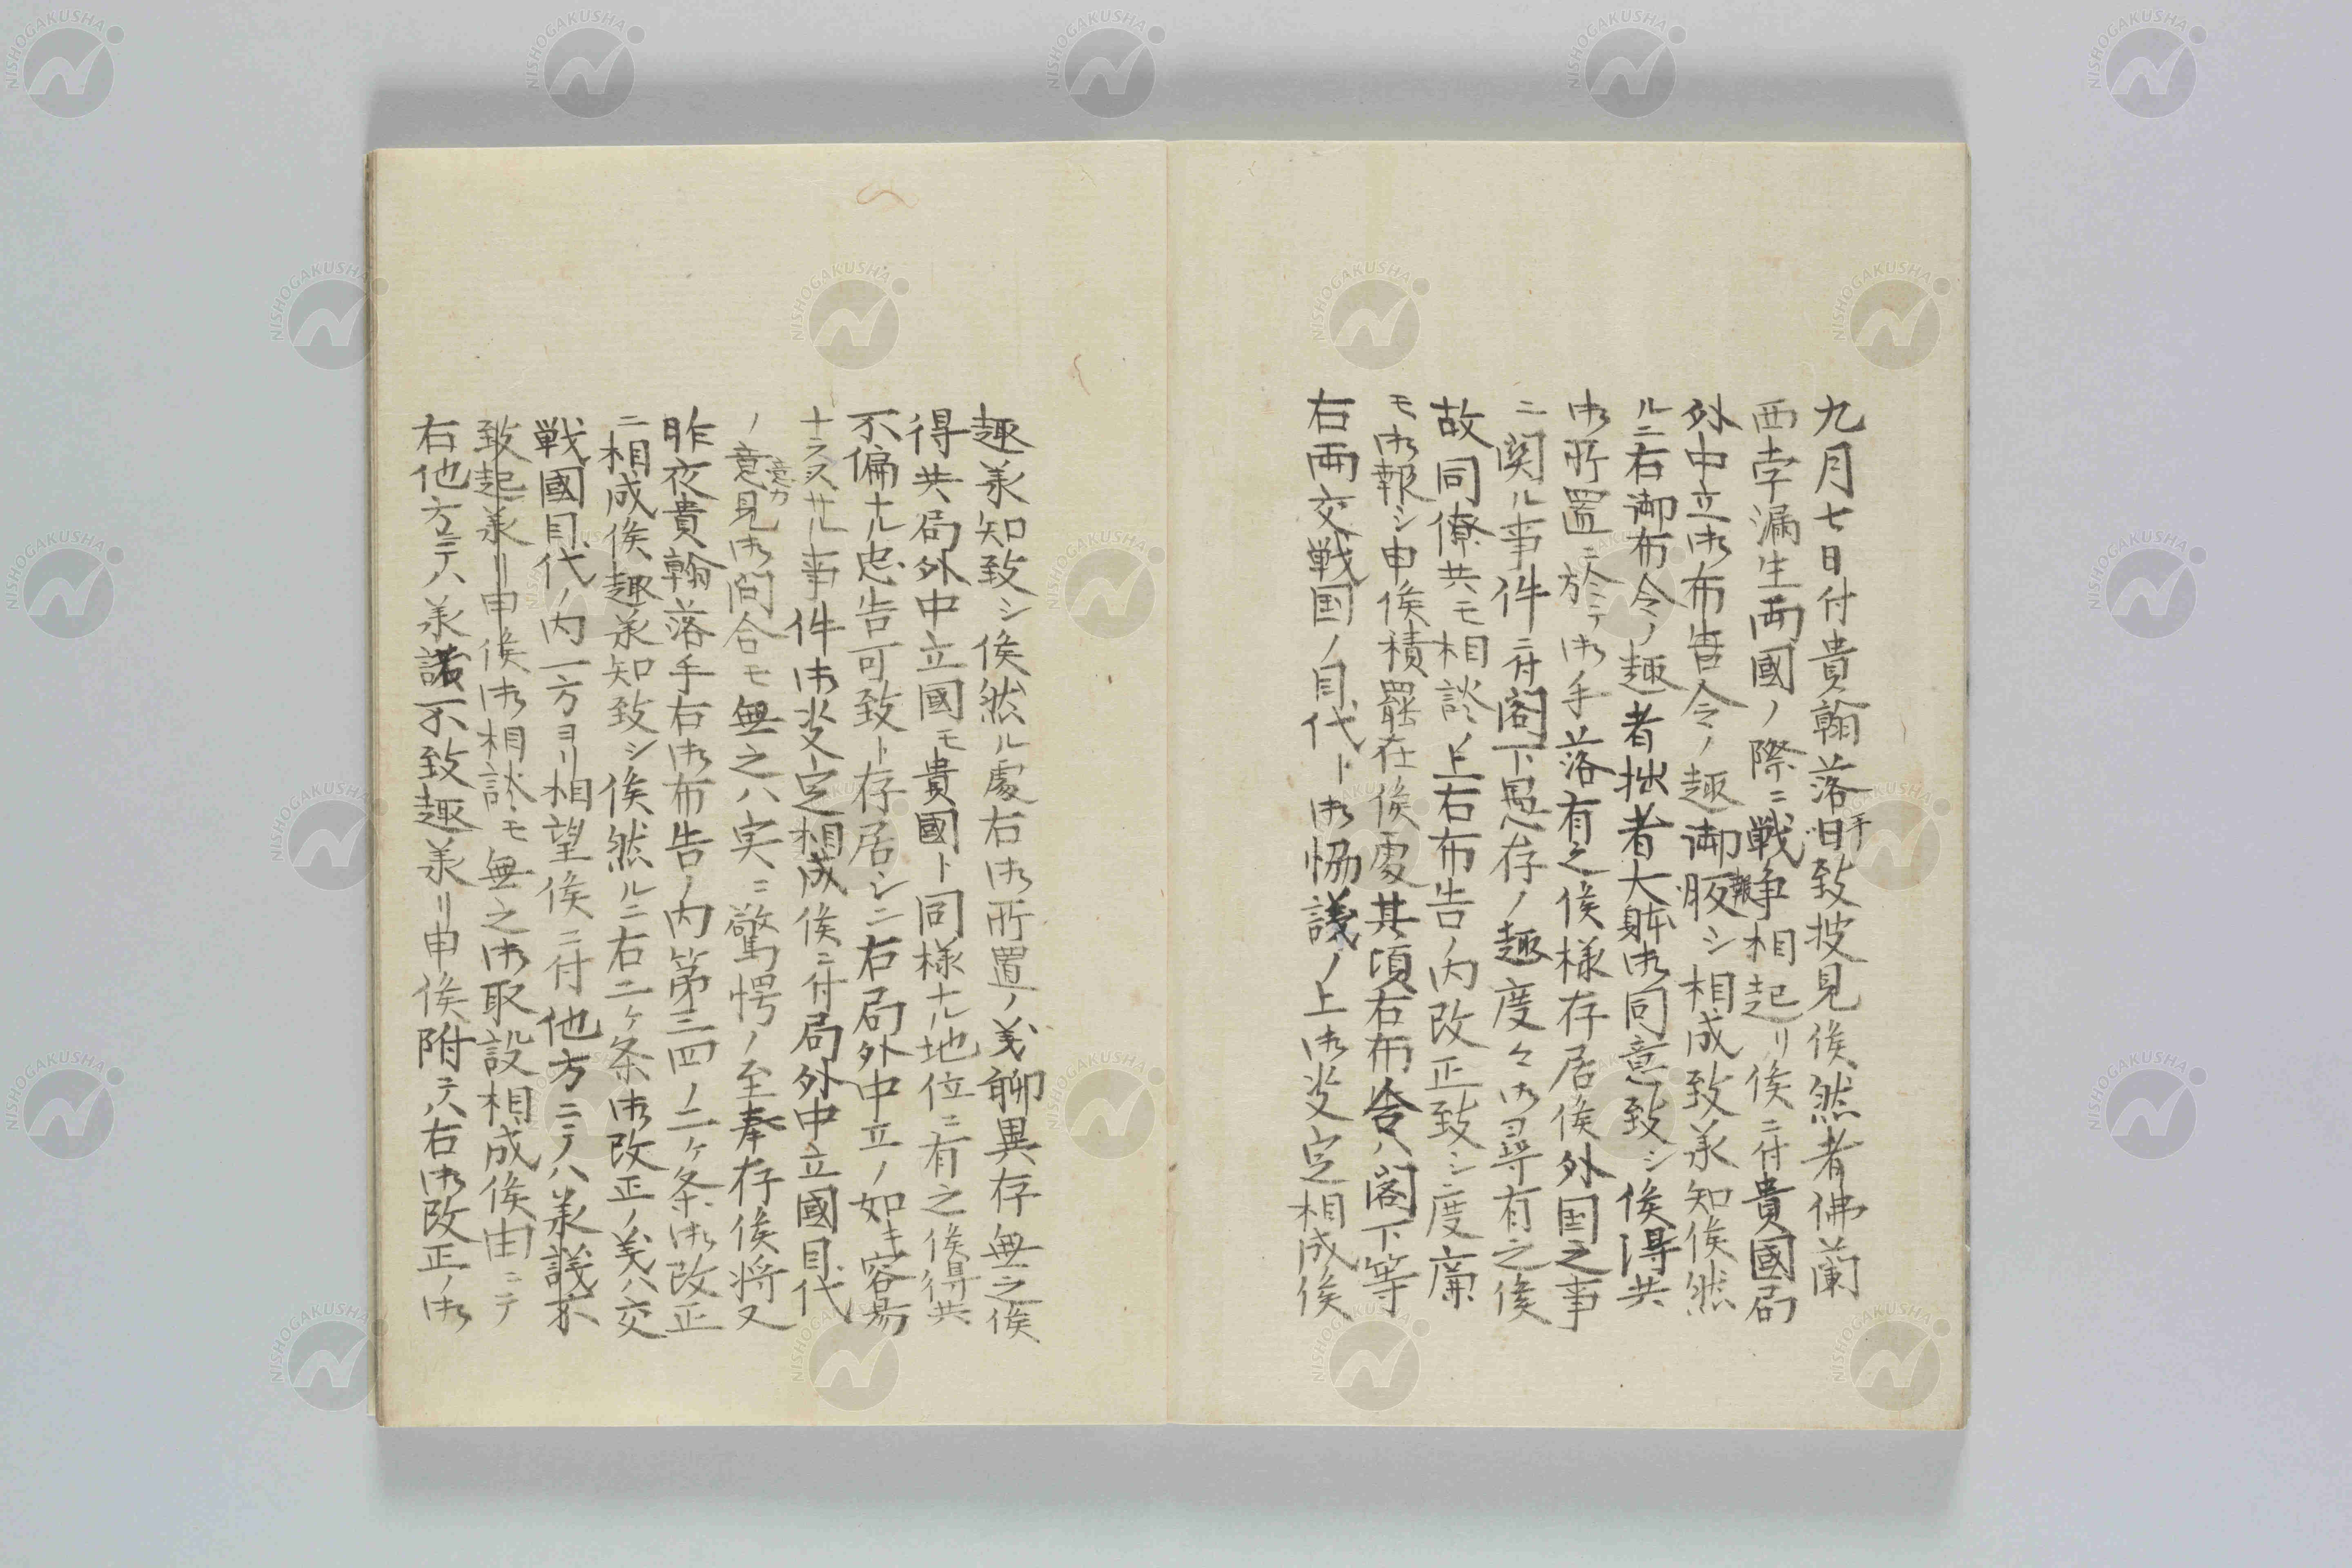 九月七日付貴翰落旧手致披見候然者佛蘭
西孛漏生両國ノ際ニ戦争相起リ候ニ付貴國局
外中立御布告令ノ趣御報シ相成致承知候然
ルニ右御布令ノ趣者拙者大躰御同意致シ候得共
御所置ニ於ミテ御手落有之候様存居候外国之事
ニ関ル事件ニ付閣下愚存ノ趣度々御尋有之候
故同僚共モ相談ノ上右布告ノ内改正致シ度廉
モ御報シ申候積罷在候處其頃右布令ハ閣下等
右両交戦国ノ目代ト御恊議ノ上御决定相成候
趣承知致シ候然ル處右御所置ノ義聊異存無之候
得共局外中立國モ貴國ト同様ナル地位ニ有之候得共
不偏ナル忠告可致ト存居シニ右局外中立ノ如キ容易
ナラヌサル事件御决定相成候ニ付局外中立國目代
ノ意見御問合モ無之ハ実ニ驚愕ノ至奉存候将又
意カ
昨夜貴翰落手右御布告ノ内第三四ノ二ケ条御改正
ニ相成候趣承知致シ候然ルニ右二ケ条御改正ノ義ハ交
戦國目代ノ内一方ヨリ相望候ニ付他方ニテハ承議不
致起承リ申候御相談モ無之御取設相成候由ニテ
右他方ニテハ承諾不致趣承リ申候附テハ右御改正ノ御
NISHOGAKUSHA